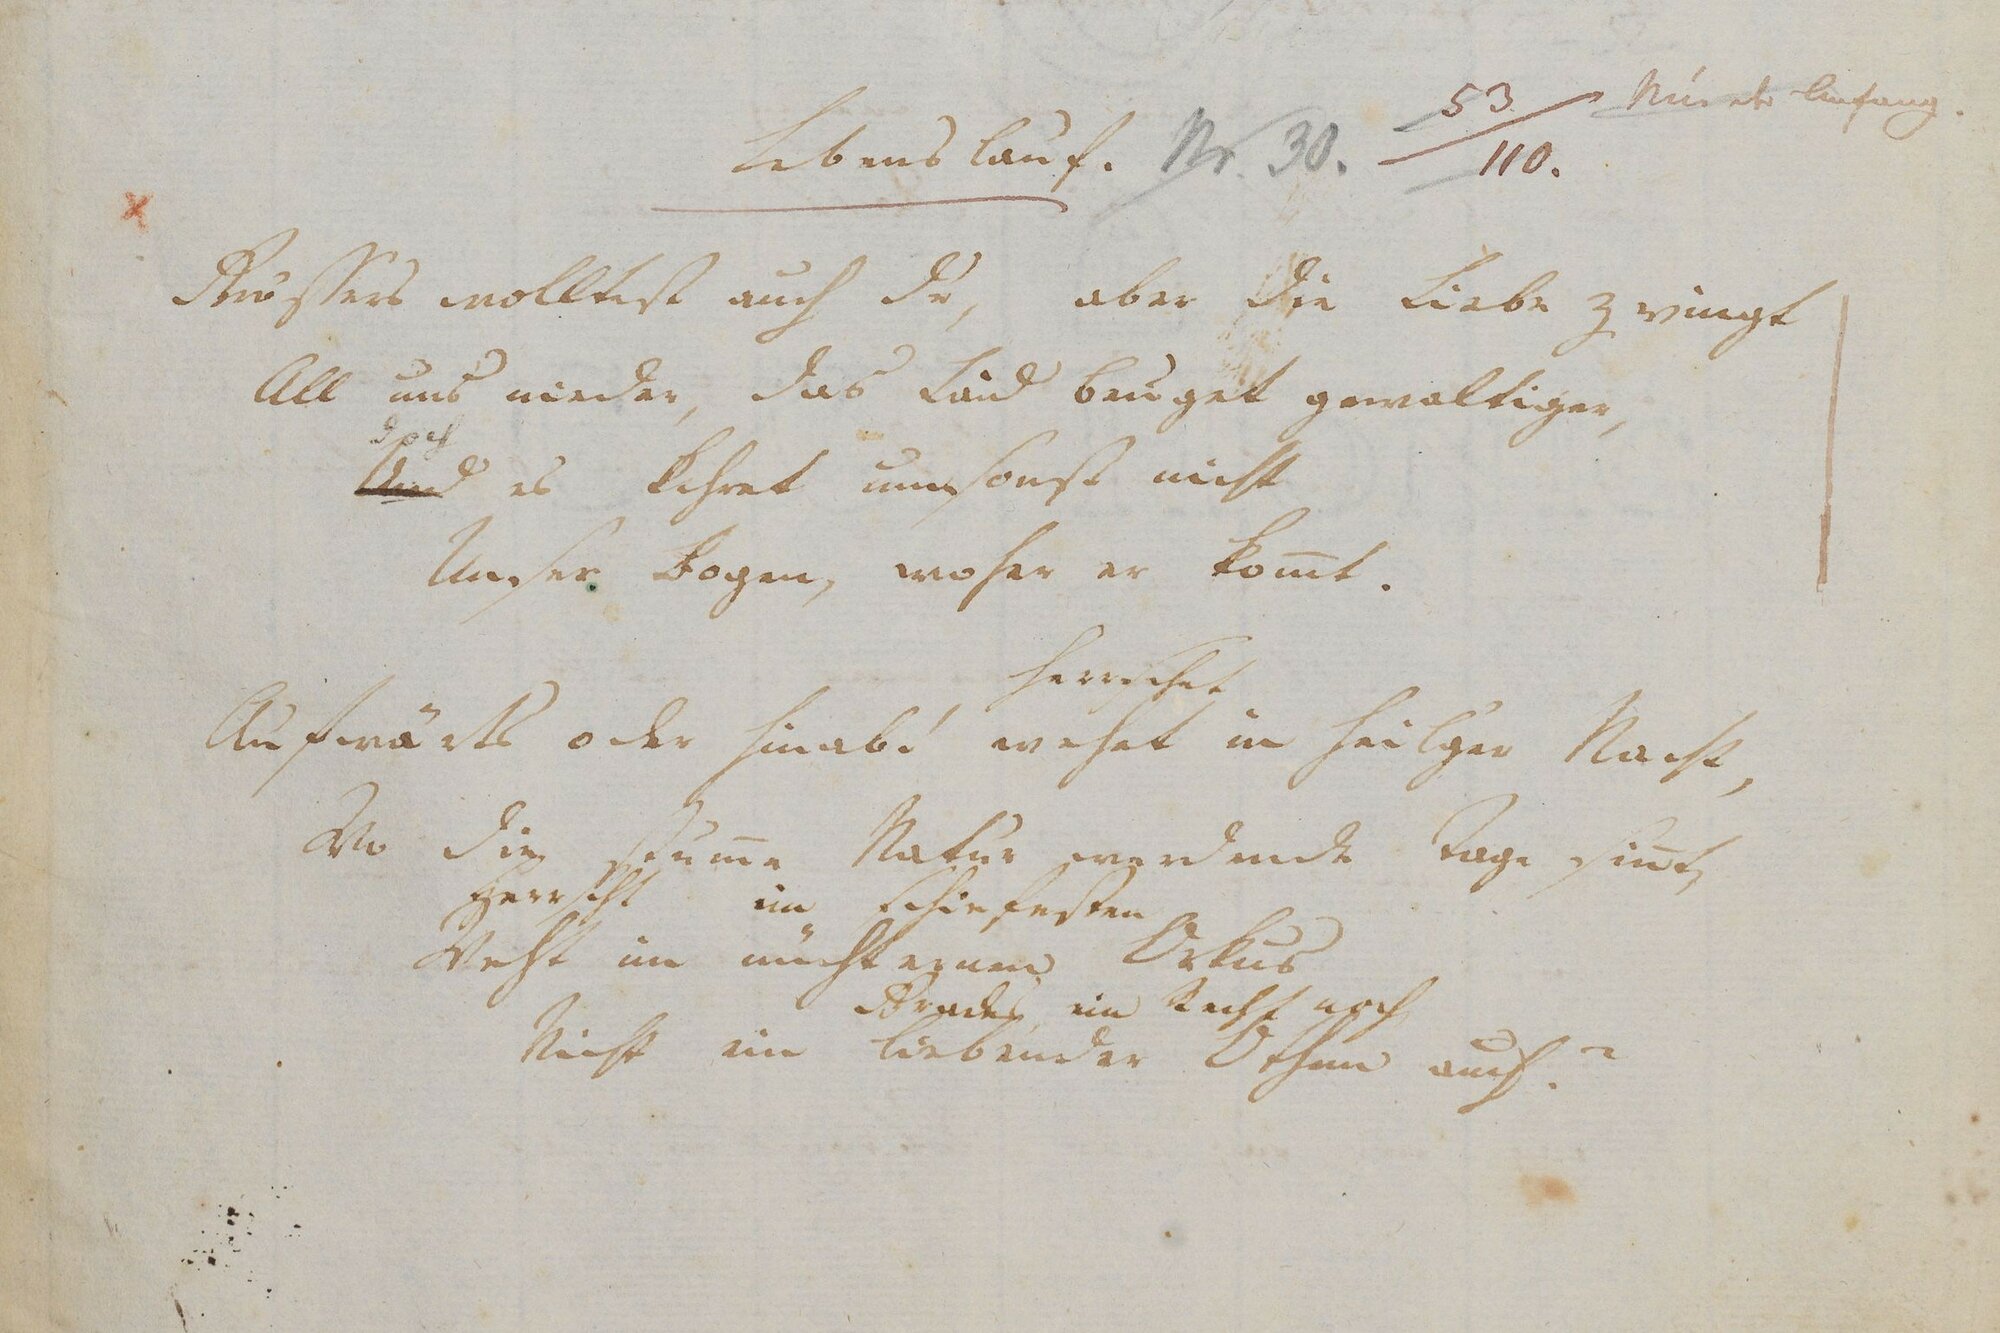 Lebenslauf. Nr. 30. 53/110. Nur der Anfang.
Größers wolltest auch du, aber die Liebe zwingt
All uns nieder, das Laid beuget gewaltiger,
doch
Und es kehret umsonst nicht
Unser Bogen, woher er kom̅t.
herrschet
Aufwärts oder hinab! wehet in heilger Nacht,
Wo die stum̅e Natur werdende Tage sin̅t,
Herrscht im schiefesten
Weht im nüchternen Orkus
Grades, ein Recht noch
Nicht ein liebender Othem auch?